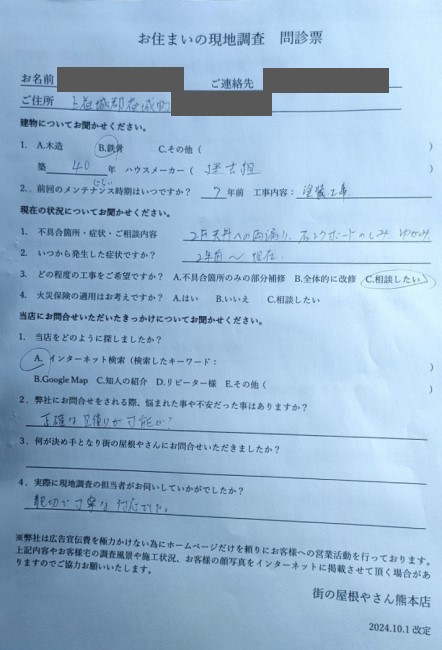 お住まいの現地調査 問診票
お名前 ご連絡先
ご住所 上益城郡益城町
建物についてお聞かせください。
1. A.木造 B.鉄骨 C.その他( )
築 40 年 ハウスメーカー( )
2. 前回のメンテナンス時期はいつですか? 7 年前 工事内容: 塗装工事
現在の状況についてお聞かせください。
1. 不具合箇所・症状・ご相談内容 2F天井への雨漏り、石コウボードのしみ ゆがみ
2. いつから発生した症状ですか? 2年前〜現在
3. どの程度の工事をご希望ですか? A.不具合箇所のみの部分補修 B.全体的に改修 C.相談したい
4. 火災保険の適用はお考えですか? A.はい B.いいえ C.相談したい
当店にお問合せいただいたきっかけについてお聞かせください。
1. 当店をどのように探しましたか?
A. インターネット検索(検索したキーワード: )
B.Google Map C.知人の紹介 D.リピーター様 E.その他( )
2. 弊社にお問合せをされる際、悩まれた事や不安だった事はありますか?
正確な見積りが可能か?
3. 何が決め手となり街の屋根やさんにお問合せいただきましたか?
4. 実際に現地調査の担当者がお伺いしていかがでしたか?
親切で丁寧な対応でした。
※弊社は広告宣伝費を極力かけない為にホームページだけを頼りにお客様への営業活動を行っております。
上記内容やお客様宅の調査風景や施工状況、お客様の顔写真をインターネットに掲載させて頂く場合があ
りますのでご協力お願いいたします。
街の屋根やさん熊本店
2024.10.1 改定